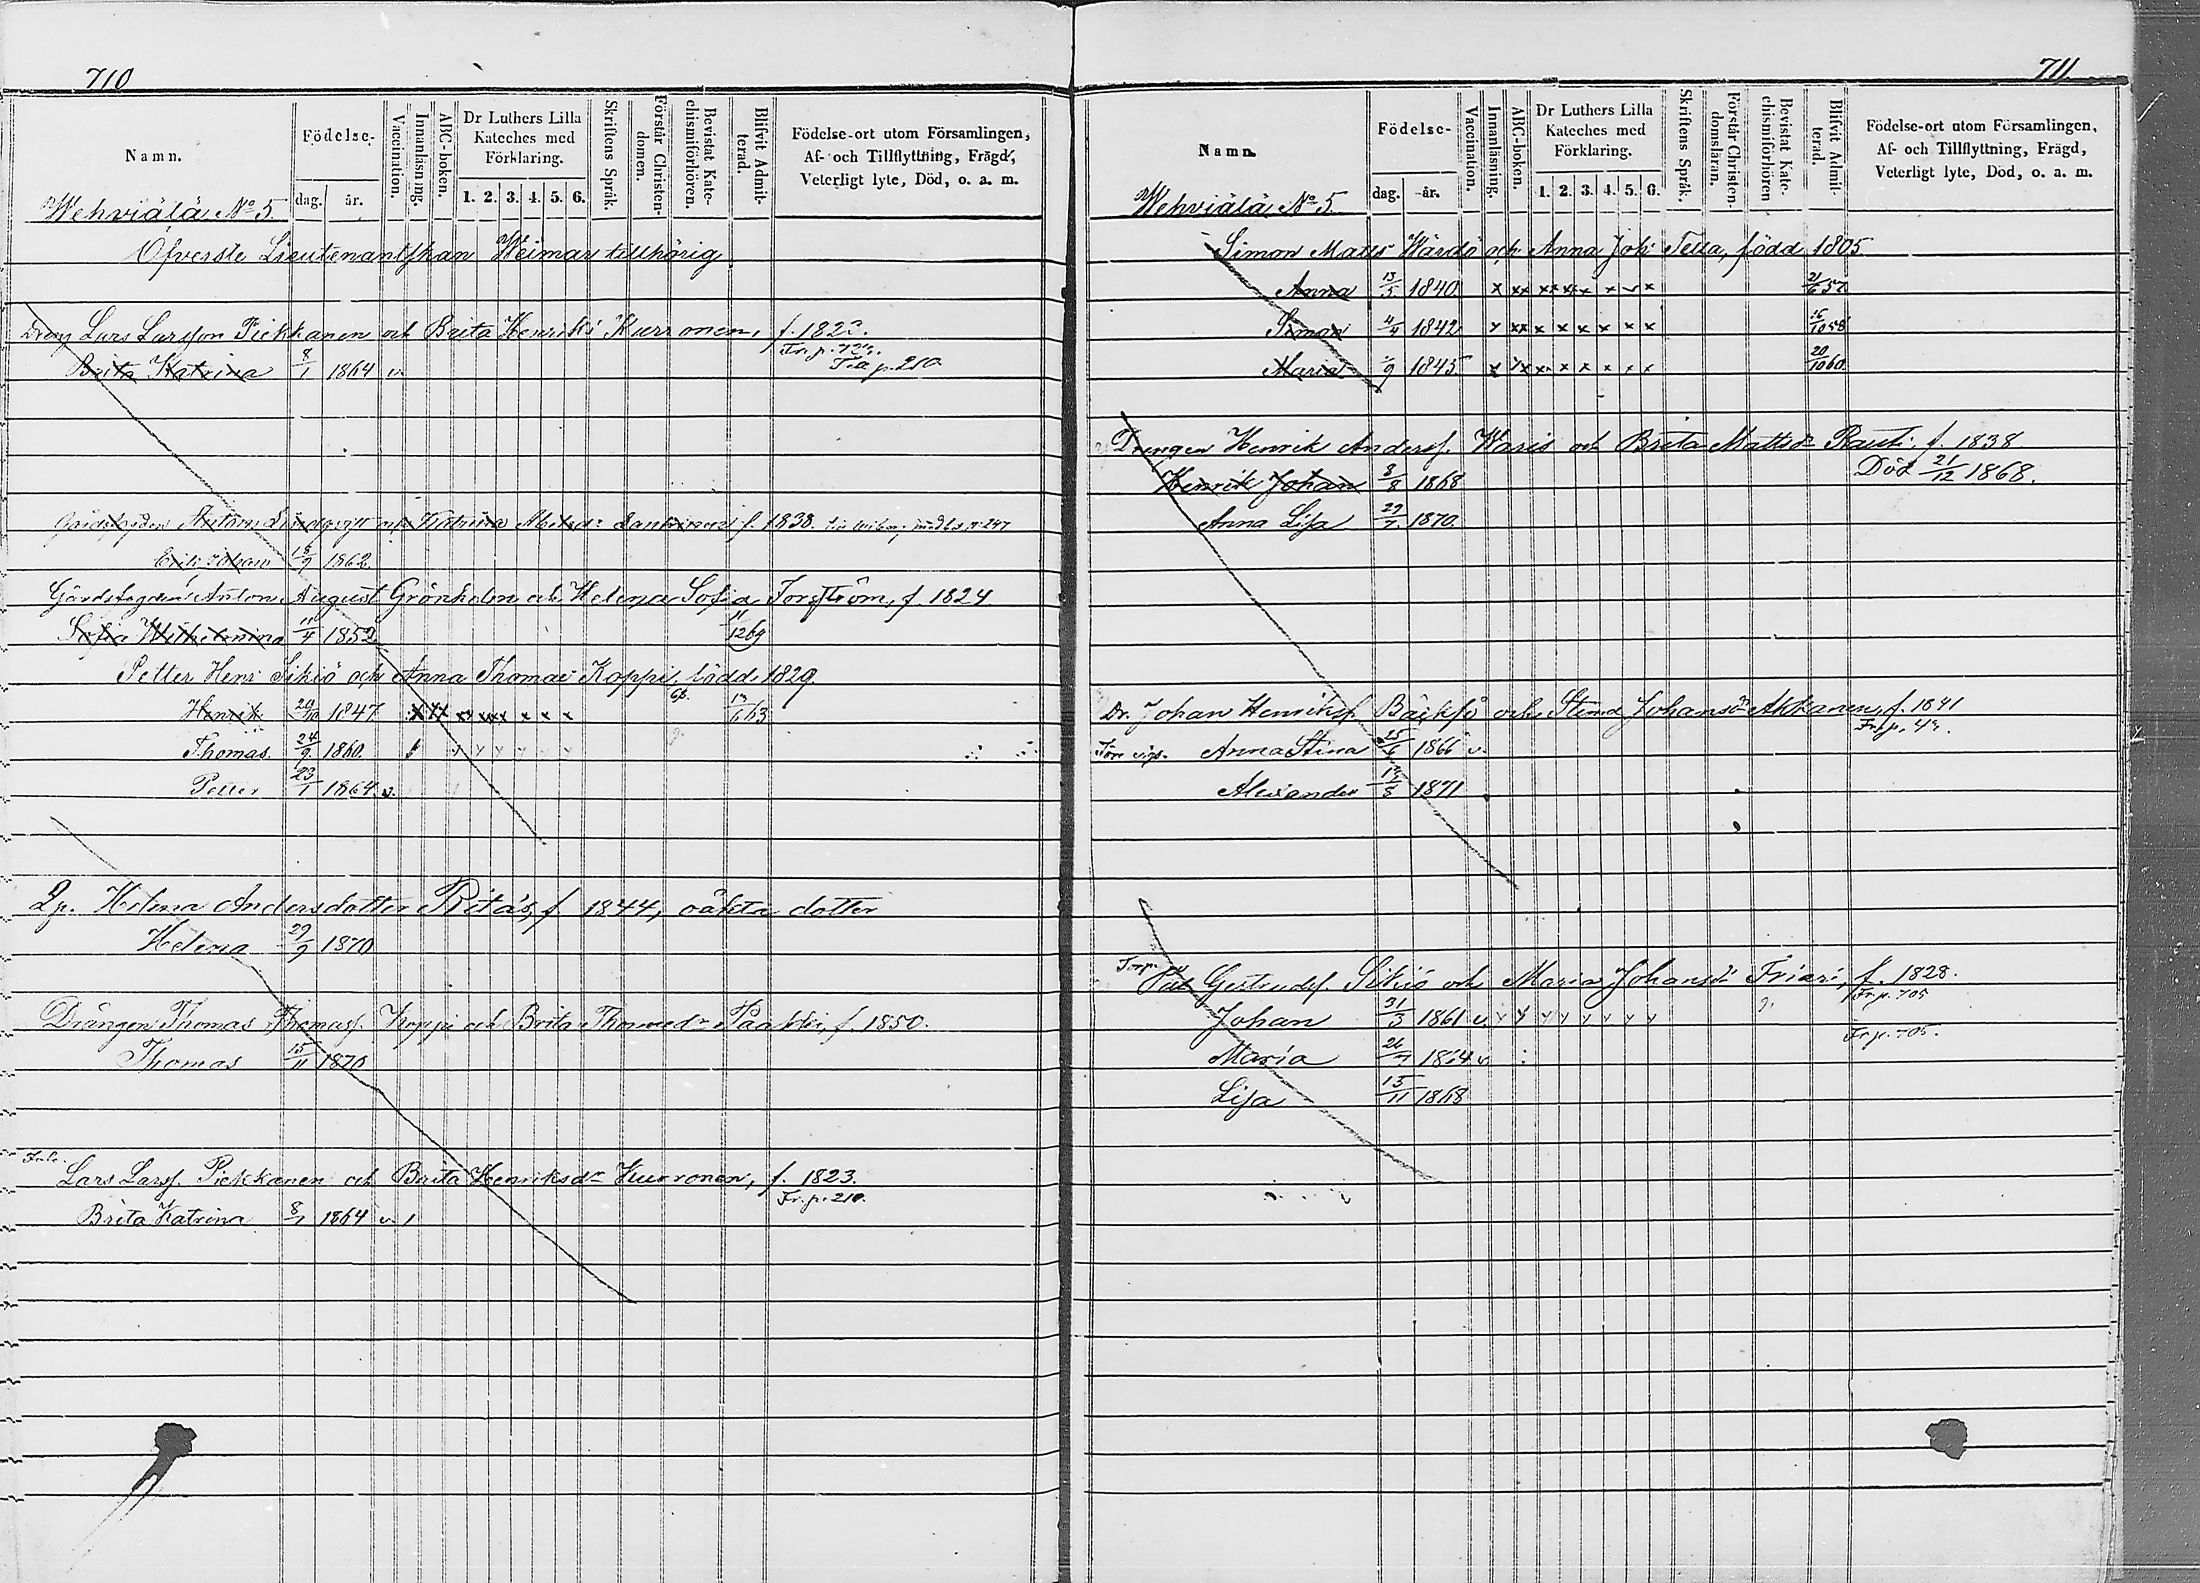 710
Namn.
Födelse-
dag. år.
Vaccination.
Innanläsning.
ABC-boken.
Dr Luthers Lilla Kateches med Förklaring.
1. 2. 3. 4. 5. 6.
Skriftens Språk.
Förstår Christendomen.
Bevistat Katechismiförhören.
Blifvit Admitterad.
Födelse-ort utom Församlingen, Af- och Tillflyttning, Frägd, Veterligt lyte, Död, o. a. m.
Wehviälä No 5.
Öfverste Lieutenantskan Weimar tillhörig
Dreng Lars Larsson Piekkanen och Brita Henriks Kurronen, f. 182
Fr. p.
Brita Katrina 8/1 1864 v. Till p. 210
Anton f. 1838.
Erik Johan 18/9 1862
Gårdsfogden Anton August Grönholm och Helena Sofia Forsström, f. 1824.
Sofia Wilhelmina 11/4 1852 11/12 69
Petter Henr Sikiö och Anna Thomae Koppi, född 1829.
Henrik 20/10 1847 x xx xx xxx x x x 63
Thomas. 24/9 1860.
Petter 23/1 1864. v.
Helena Andersdotter Ritas, f 1844, oäkta dotter
Helena 29/9 1870
Drängen Thomas Thomass. Koppi och Brita Thomasdr Paakki, f. 1850.
Thomas 15/11 1870
Lars Larss. Piekkanen och Brita Henriksdr Kurronen, f. 1823.
Fr. p. 210.
Brita Katrina 8/1 1864 v
711
Namn.
Födelse-
dag. år.
Vaccination.
Innanläsning.
ABC-boken.
Dr Luthers Lilla Kateches med Förklaring.
1. 2. 3. 4. 5. 6.
Skriftens Språk.
Förstår Christendomsläran.
Bevistat Katechismiförhören
Blifvit Admitterad.
Födelse-ort utom Församlingen, Af- och Tillflyttning, Frägd, Veterligt lyte, Död, o. a. m.
Wehviälä No 5.
Simon Matts Wärdö och Anna Joh Tella, född 1805
Anna 13/5 1840 x xx xx xx x x x 21/6 57
Simon 4/4 1842 x xx x x x x x x 16/10 58
Maria /9 1845 x xx x x x x x x 20/10 60
Drengen Henrik Anderss. Waris och Brita Mattsdr Rauti, f. 1838
Död 21/12 1868.
Henrik Johan 8/8 1868
Anna Lisa 29/7 1870
Dr. Johan Henrikss. Bäcksö och Stina Johansdr Akkanen, f. 1841
Fr. p. 4
Anna Stina 25/6 1866 v.
Alexander 1871
Torp. Gertruds. Sikiö och Maria Johansdr Friari, f. 1828.
Fr p. 705
Johan 31/3 1861 v. y y y y y y y y
Fr p. 705.
Maria 26/7 1864 v.
Lisa 15/11 1868